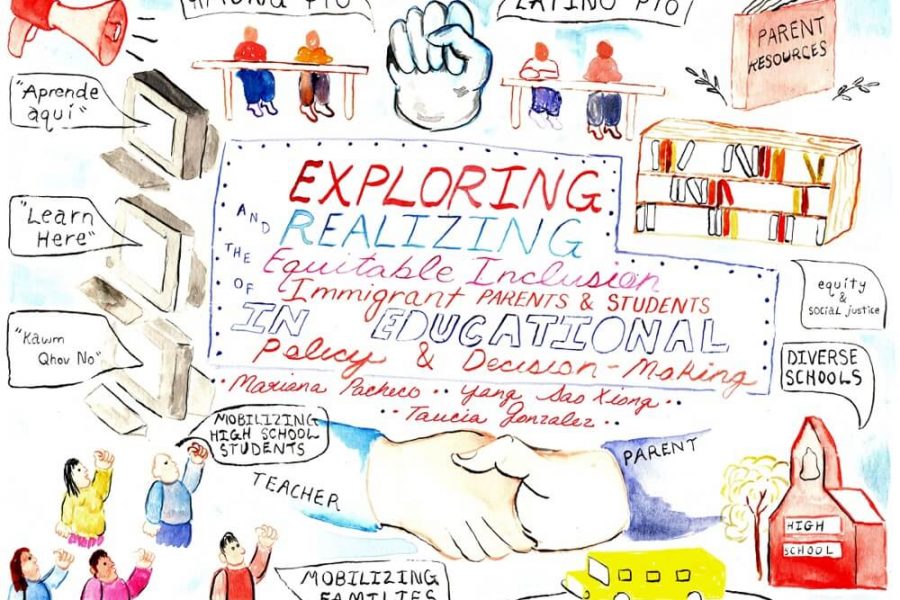 HMONG PTO
LATINO PTO
PARENT
RESOURCES
"Aprende
aqui"
"Learn
Here"
"Kawm
Qhov No"
EXPLORING
AND REALIZING
THE Equitable Inclusion
OF Immigrant PARENTS & STUDENTS
IN EDUCATIONAL
Policy & Decision-Making
Mariana Pacheco .. Yang Sao Xiong ..
.. Taucia Gonzalez ..
equity
&
social justice
DIVERSE
SCHOOLS
MOBILIZING
HIGH SCHOOL
STUDENTS
TEACHER
PARENT
HIGH
SCHOOL
MOBILIZING
FAMILIES